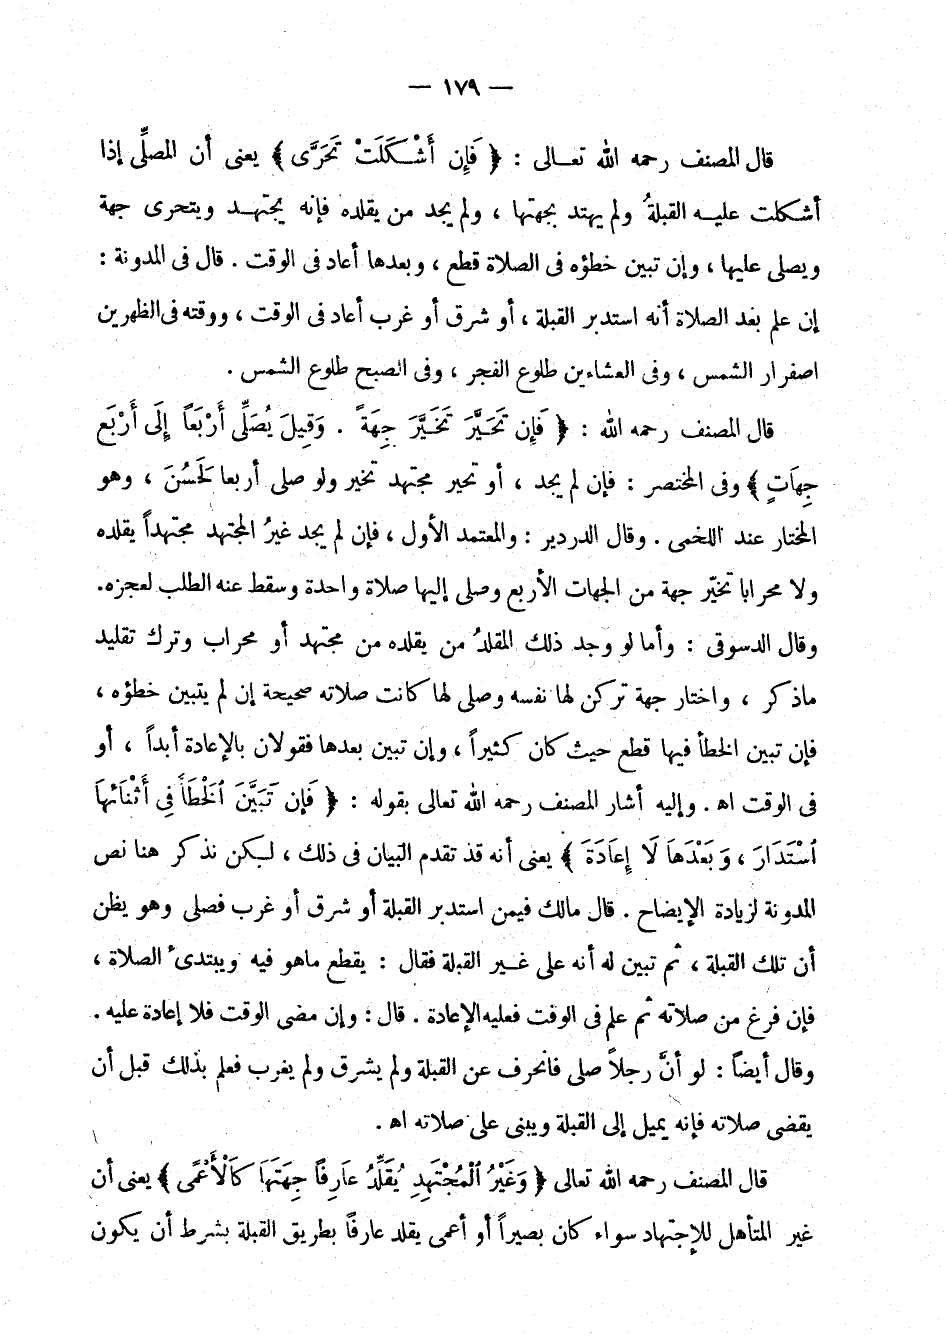 — ١٧٩ —
قال المصنف رحمه الله تعـالى : ﴿ فَإِن أَشْـكَلَتْ تَحَرَّى ﴾ يعنى أن المصلِّى إذا
أشكلت عليـه القبلةُ ولم يهتد بجهتها ، ولم يجد من يقلده فإنه يجتهـد ويتحرى جهة
ويصلى عليها ، وإن تبين خطؤه فى الصلاة قطع ، وبعدها أعاد فى الوقت . قال فى المدونة :
إن علم بعد الصلاة أنه استدبر القبلة ، أو شرق أو غرب أعاد فى الوقت ، ووقته فى الظهرين
اصفرار الشمس ، وفى العشاءين طلوع الفجر ، وفى الصبح طلوع الشمس .
قال المصنف رحمه الله : ﴿ فَإِن تَحَيَّرَ تَخَيَّرَ جِهَةً . وَقِيلَ يُصَلِّى أَرْبَعاً إِلَى أَرْبَع
جِهَاتٍ ﴾ وفى المختصر : فإن لم يجد ، أو تحير مجتهد تخير ولو صلى أربعا لَحَسُنَ ، وهو
المختار عند اللخمى . وقال الدردير : والمعتمد الأول ، فإن لم يجد غيرُ المجتهد مجتهداً يقلده
ولا محرابا تخيّر جهة من الجهات الأربع وصلى إليها صلاة واحدة وسقط عنه الطلب لعجزه.
وقال الدسوقى : وأما لو وجد ذلك المقلدُ من يقلده من مجتهد أو محراب وترك تقليد
ماذكر ، واختار جهة تركن لها نفسه وصلى لها كانت صلاته صحيحة إن لم يتبين خطؤه ،
فإن تبين الخطأ فيها قطع حيث كان كثيراً ، وإن تبين بعدها فقولان بالإعادة أبداً ، أو
فى الوقت اه . وإليه أشار المصنف رحمه الله تعالى بقوله : ﴿ فَإِن تَبَيَّنَ ٱلْخَطَأُ فِى أَثْنَائهَا
ٱسْتَدَارَ ، وَبَعْدَهَا لَا إِعَادَةَ ﴾ يعنى أنه قد تقدم البيان فى ذلك ، لـكن نذكر هنا نص
المدونة لزيادة الإيضاح . قال مالك فيمن استدبر القبلة أو شرق أو غرب فصلى وهو يظن
أن تلك القبلة ، ثم تبين له أنه على غـير القبلة فقال : يقطع ماهو فيه ويبتدئ الصلاة ،
فإن فرغ من صلاته ثم علم فى الوقت فعليه الإعادة . قال : وإن مضى الوقت فلا إعادة عليه .
وقال أيضاً : لو أنَّ رجلاً صلى فانحرف عن القبلة ولم يشرق ولم يغرب فعلم بذلك قبل أن
يقضى صلاته فإنه يميل إلى القبلة ويبنى على صلاته اه .
قال المصنف رحمه الله تعالى ﴿ وَغَيْرُ ٱلْمُجْتَهِدِ يُقَلِّدُ عَارِفًا جِهَتَهَا كَٱلْأَعْمَى ﴾ يعنى أن
غير المتأهل للإجتهاد سواء كان بصيراً أو أعمى يقلد عارفًا بطريق القبلة بشرط أن يكون